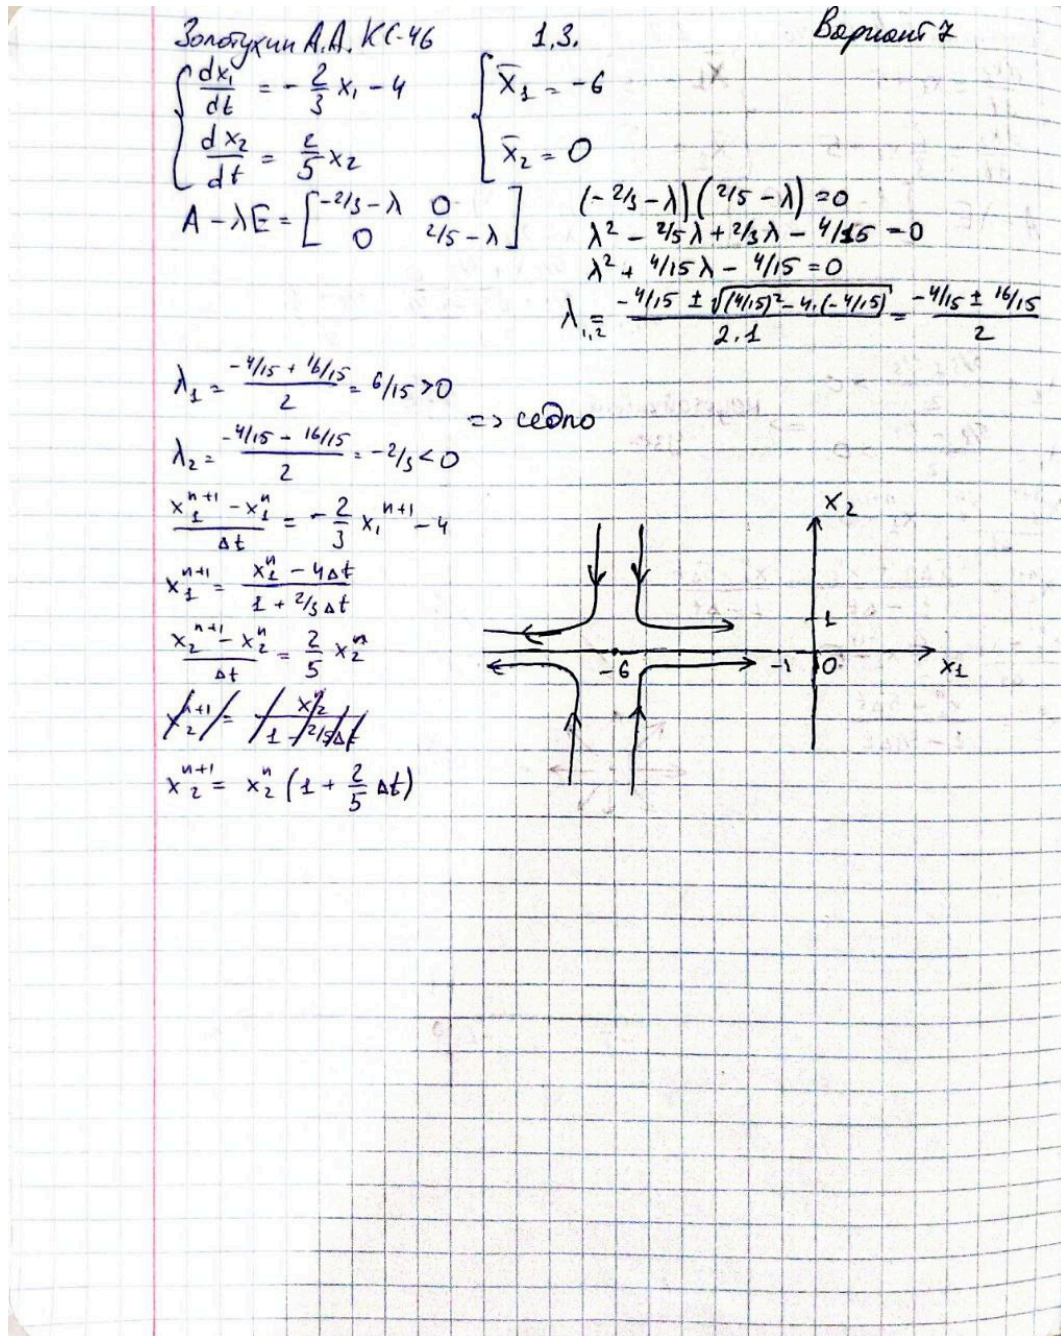 Золотухин А.А. КС-46 1.3. Вариант 7
{ dx₁/dt = -2/3 x₁ - 4 { x̄₁ = -6
{ dx₂/dt = 2/5 x₂ { x̄₂ = 0
A - λE = [ -2/3 - λ 0 ; 0 2/5 - λ ]
(-2/3 - λ)(2/5 - λ) = 0
λ² - 2/5λ + 2/3λ - 4/15 = 0
λ² + 4/15λ - 4/15 = 0
λ₁,₂ = (-4/15 ± √((4/15)² - 4·(-4/15)))/(2·1) = (-4/15 ± 16/15)/2
λ₁ = (-4/15 + 16/15)/2 = 6/15 > 0
=> седло
λ₂ = (-4/15 - 16/15)/2 = -2/3 < 0
(x₁ⁿ⁺¹ - x₁ⁿ)/Δt = -2/3 x₁ⁿ⁺¹ - 4
x₁ⁿ⁺¹ = (x₁ⁿ - 4Δt)/(1 + 2/3Δt)
(x₂ⁿ⁺¹ - x₂ⁿ)/Δt = 2/5 x₂ⁿ
x₂ⁿ⁺¹ = x₂ⁿ/(1 - 2/5Δt)
x₂ⁿ⁺¹ = x₂ⁿ (1 + 2/5 Δt)
x₂
1
-6 -1 0 x₁